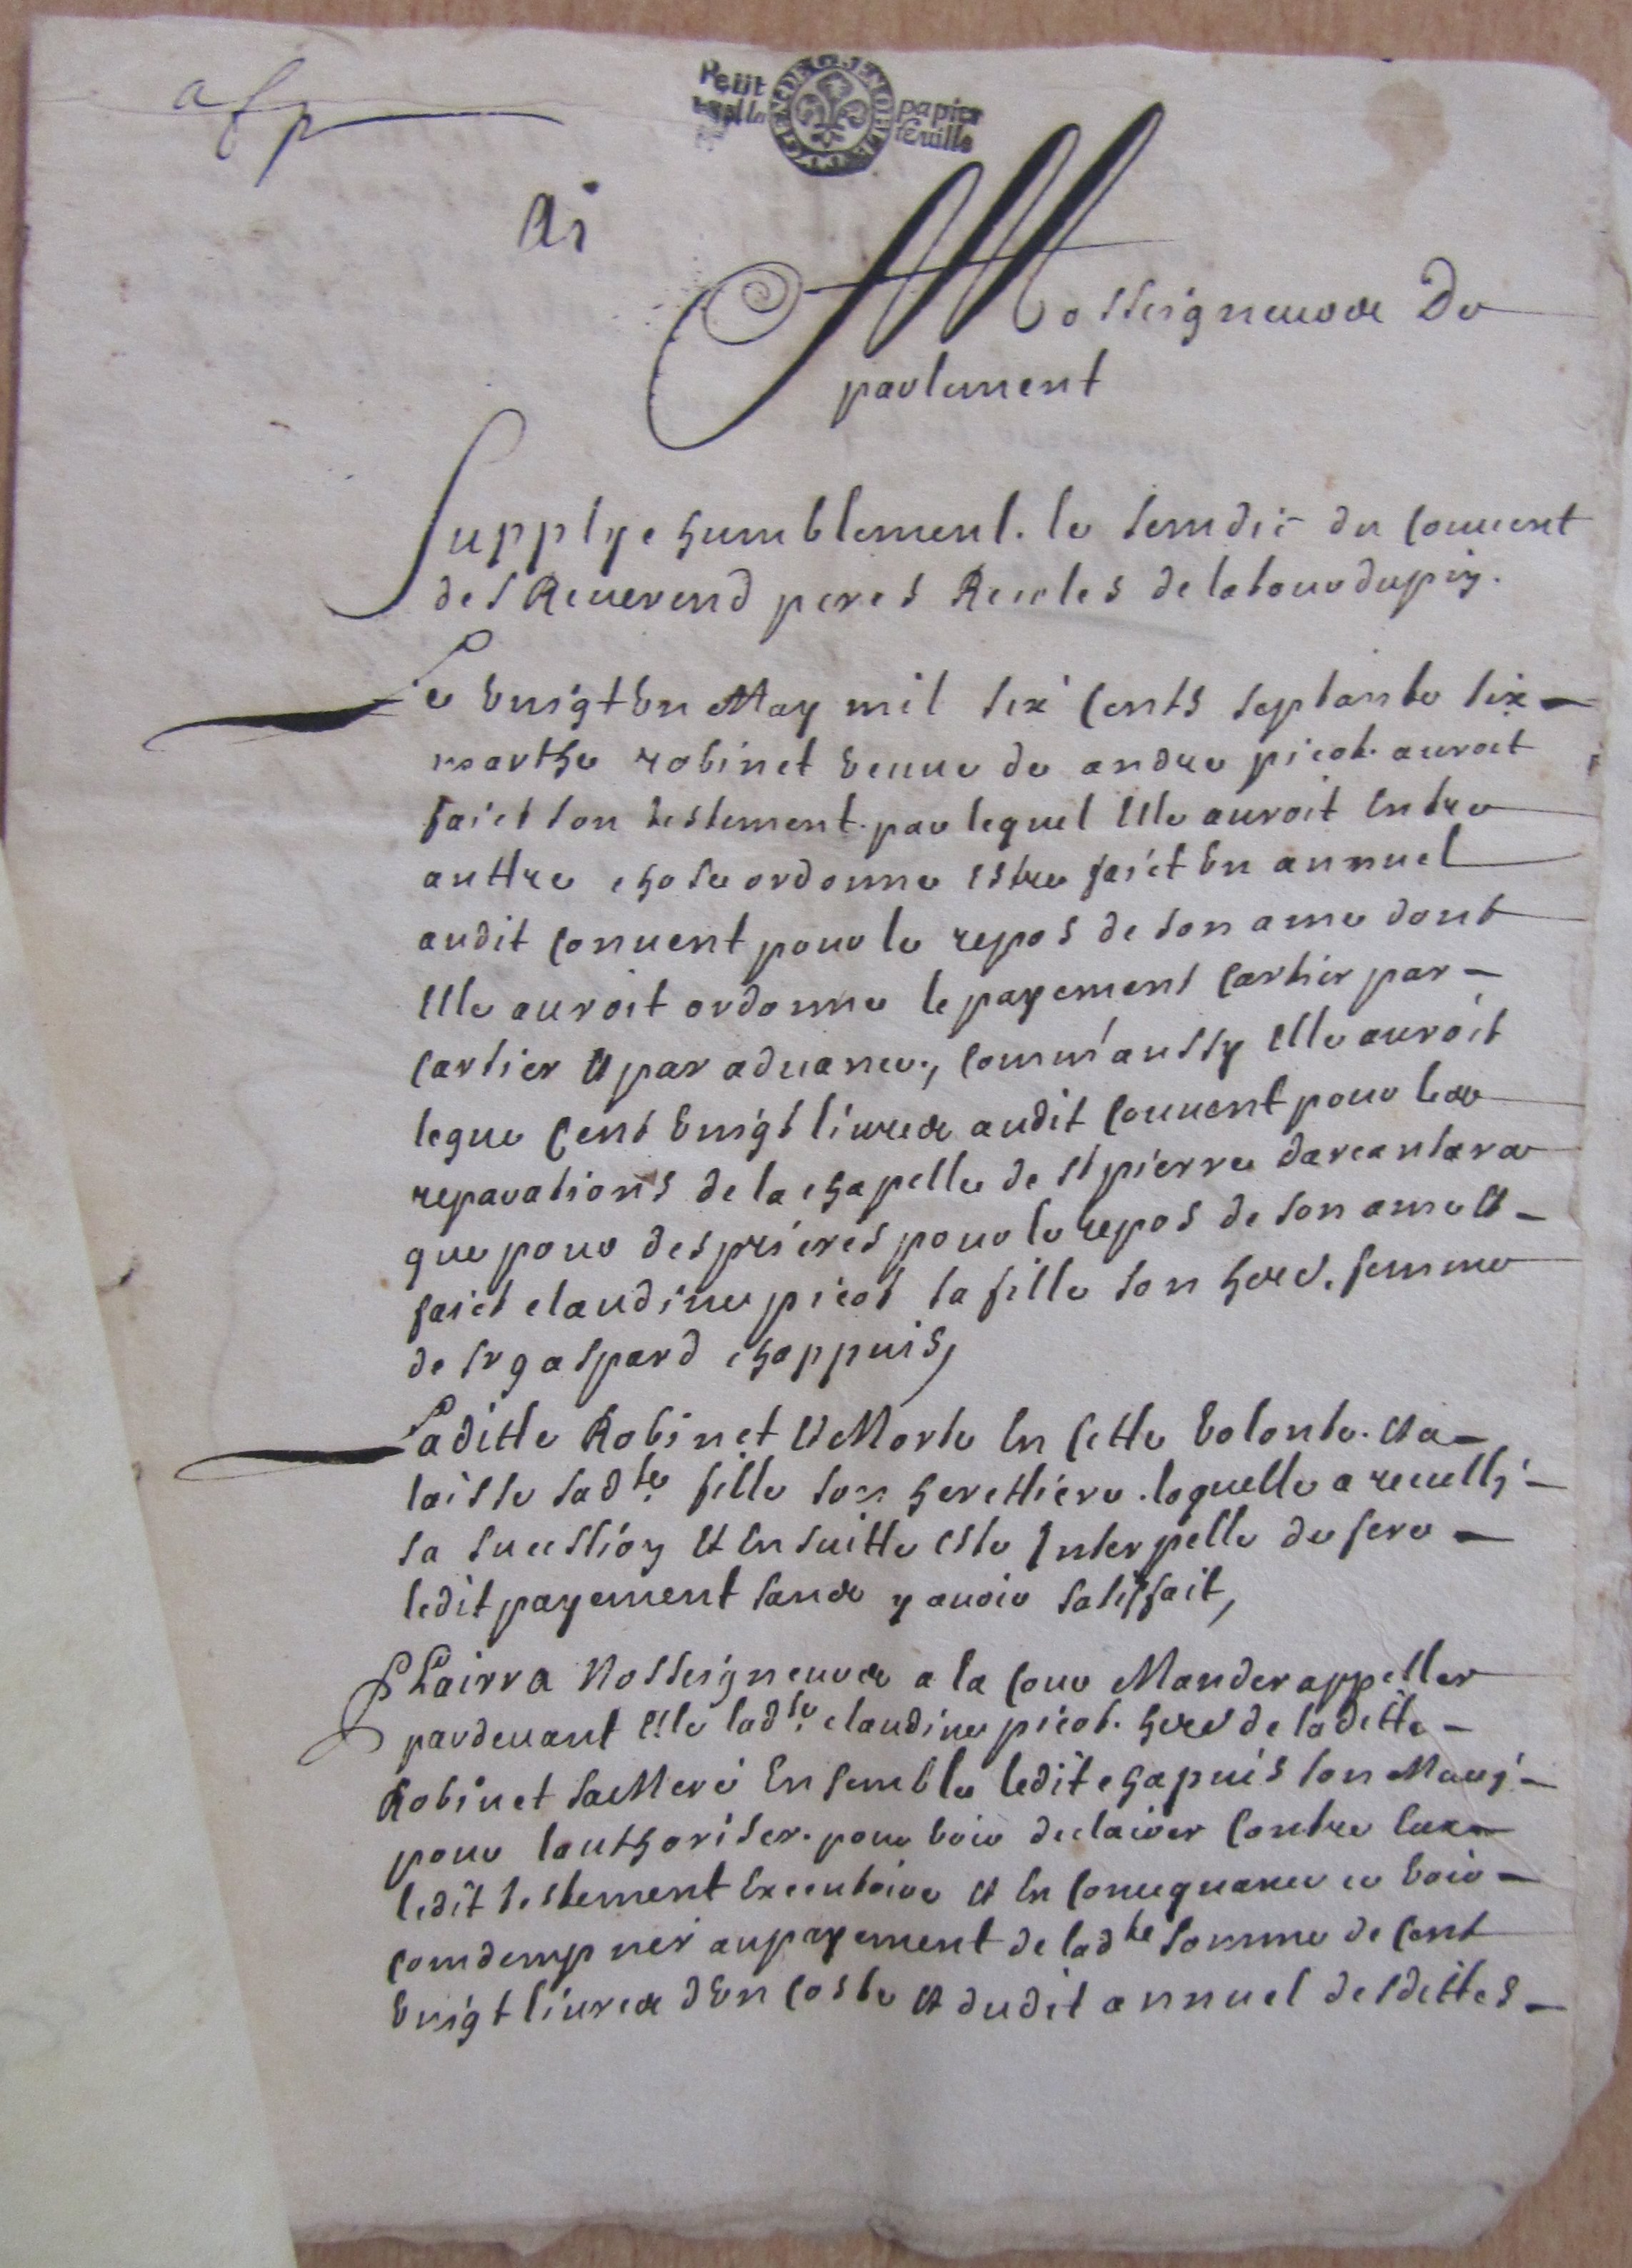 Petit papier
la feuille
GEN DE GRENOBLE
A
Nosseigneurs du
parlement
Supplye humblement. le scindic du couuent
des Reuerend peres Recoles de latour dupin.
Le vingt vn May mil six cents septante six
marthe robinet veuue de andre picot. auroit
faict son testement. par lequel Elle auroit entre
auttre chose ordonne estre faict vn annuel
audit conuent pour le repos de son ame dont
Elle auroit ordonne le payement cartier par
cartier et par aduance, comm'aussy elle auroit
legue cent vingt liures audit couuent pour les
reparations de la chapelle de st pierre darcantara
que pour des prieres pour le repos de son ame et
faict claudine picot sa fille son here. femme
de sr gaspard chappuis,
Laditte Robinet et Morte en cette volonte. et a
laisse sad.te fille son herettiere. laquelle a recully
sa sucession et en suitte este Interpelle de fere
ledit payement sans y auoir satisfait,
Plairra Nosseigneurs a la cour Mander appeller
pardeuant Elle lad.te claudine picot. here de laditte
Robinet sa Mere Ensemble ledit chapuis son Mary
pour lauthoriser. pour voir declairer contre eux
ledit testement Executoire et en consequance ce voir
comdempner au payement de lad.te somme de cent
vingt liures d'vn coste et dudit annuel desdittes